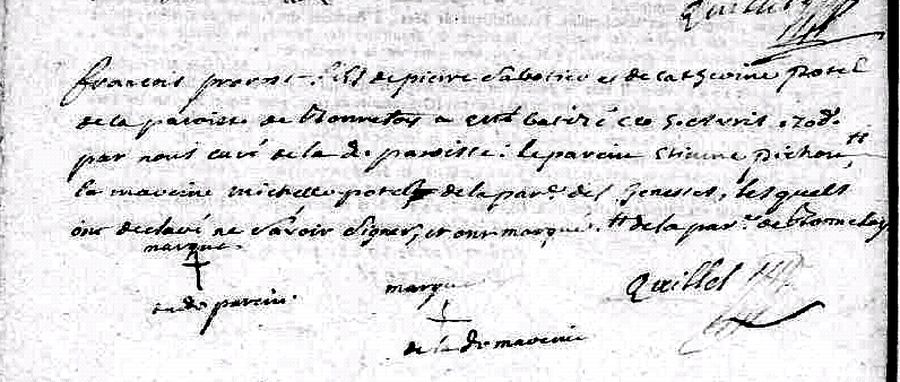 Quillet
francois prevost fils de pierre Sabotier et de Catherine potel
de la paroisse de a esté batizé ce 5. avril 1708.
par nous curé de la d. paroisse: le parein Etienne pichon #
la mareine michelle potel de la par. de Genestet, lesquels
ont declaré ne savoir signer, et ont marqué. # de la par. de
marque
du d. parein.
Quillet
marque
de la de mareine